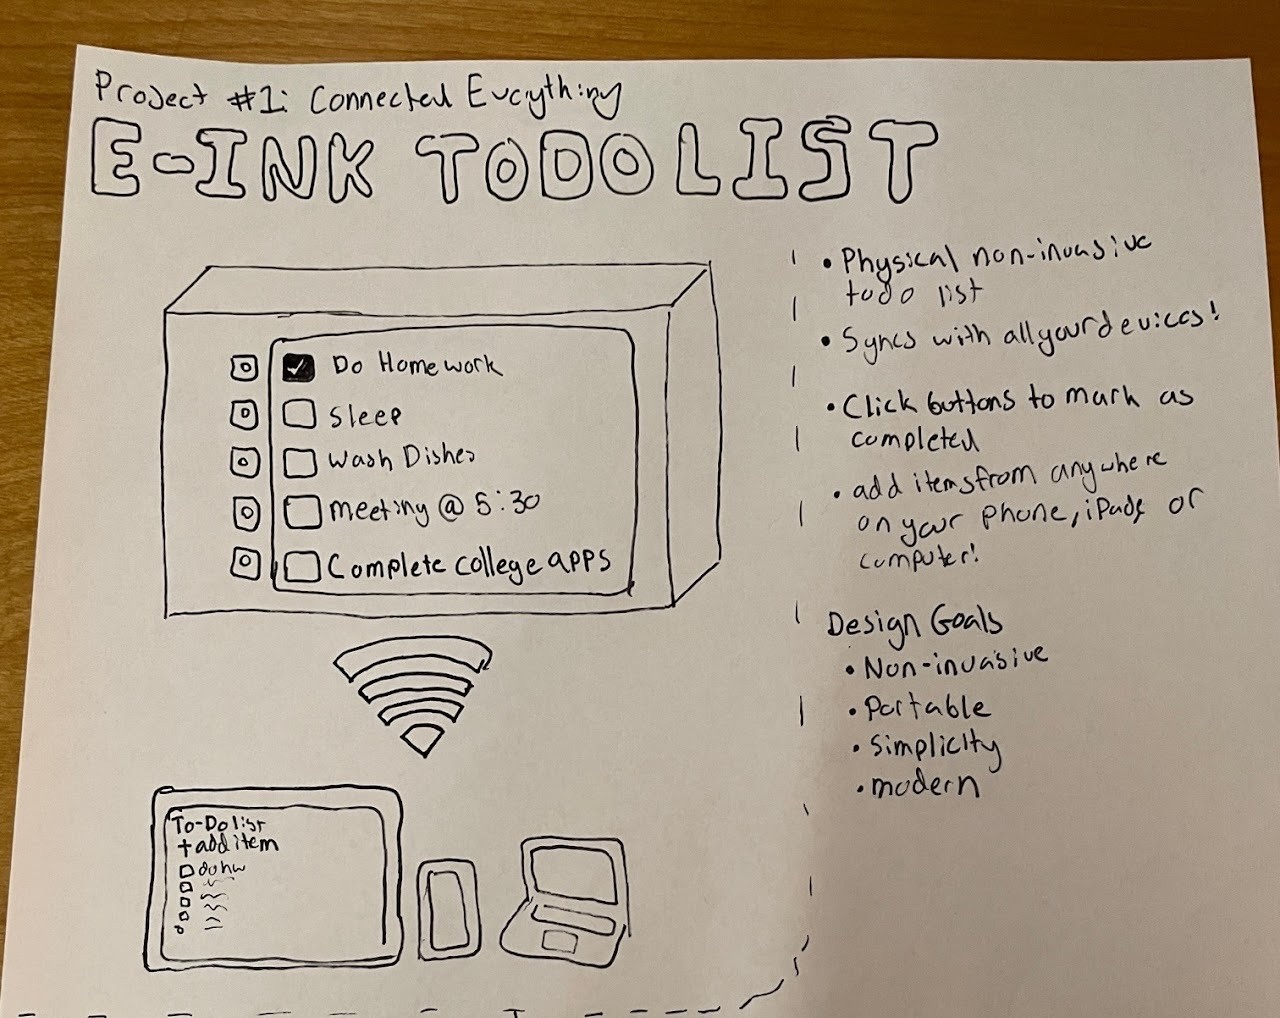 Project #1: Connected Everything
E-INK TODO LIST
Do Homework
Sleep
Wash Dishes
meeting @ 5:30
Complete college apps
To-Do list
+ add item
do hw
• Physical non-invasive
todo list
• Syncs with all your devices!
• Click buttons to mark as
completed
• add items from anywhere
on your phone, iPads or
computer!
Design Goals
• Non-invasive
• Portable
• Simplicity
• modern